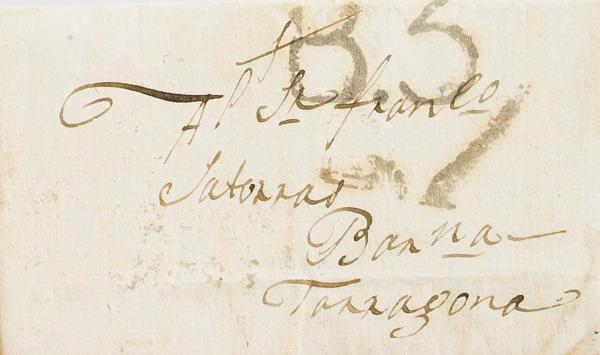 B S
Al Sr. Franco
Satorras
Barna
Tarragona